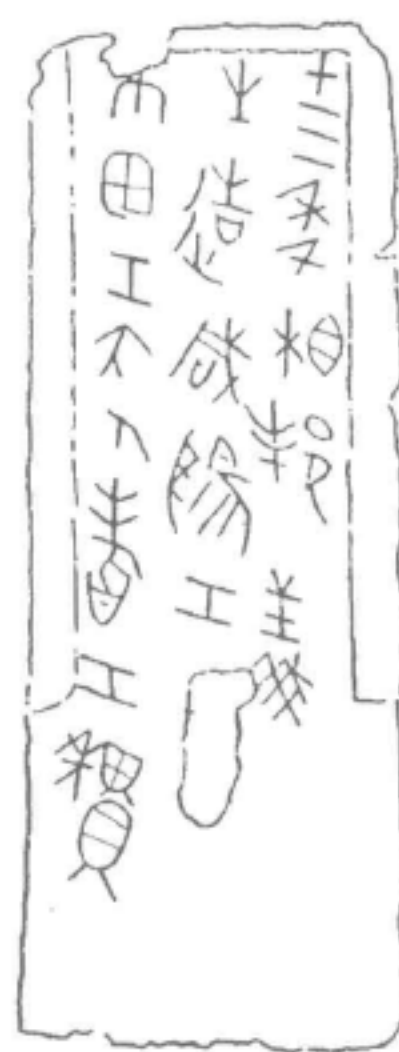 十三年相邦義
之造咸陽工
帀田工大人耆工樍